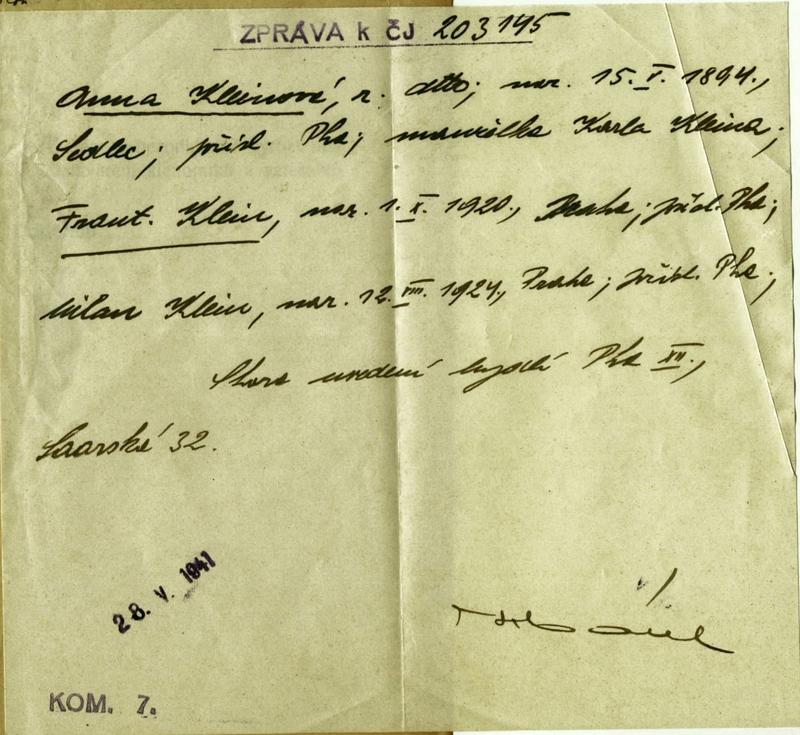 ZPRÁVA k ČJ 203145
Anna Kleinová, r. dtto; nar. 15. V. 1894.,
Sedlec; přísl. Pha; manželka Karla Kleina;
Frant. Klein, nar. 1. X. 1920., Praha; přísl. Pha;
Milan Klein, nar. 12. VIII. 1924., Praha; přísl. Pha;
Shora uvedení bydlí Pha XII.,
Saarská 32.
28. V. 1941
KOM. 7.